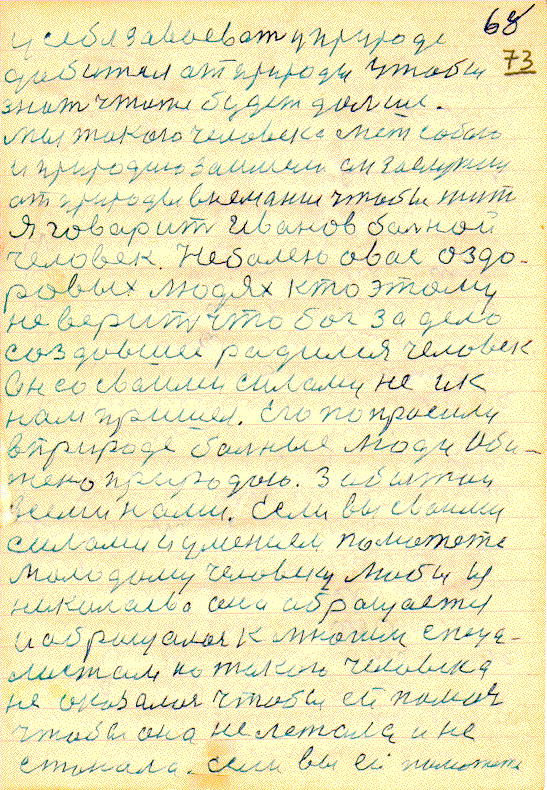 68
73
у себя завоеват у природе
добится от природы чтобы
знат что то будет дальше.
мы такого человека
и природою заимели он заслужил
от природы внемание чтобы жит
Я говарит Иванов болной
человек. Не болею о вас о здо-
ровых людях кто этому
не верит что бог за дело
создавшее радился человек
Он со сваими силами не ик
нам пришел. Его попросили
в природе болные люди оби-
жено природою. Забытой
всеми нами. Если вы сваими
силами и умением поможете
молодому человеку
николаево она абращается
и абращалася к многим спеця-
листам но такого человека
не оказался чтобы ей помоч
чтобы она не летала и не
стонала. если вы ей поможете